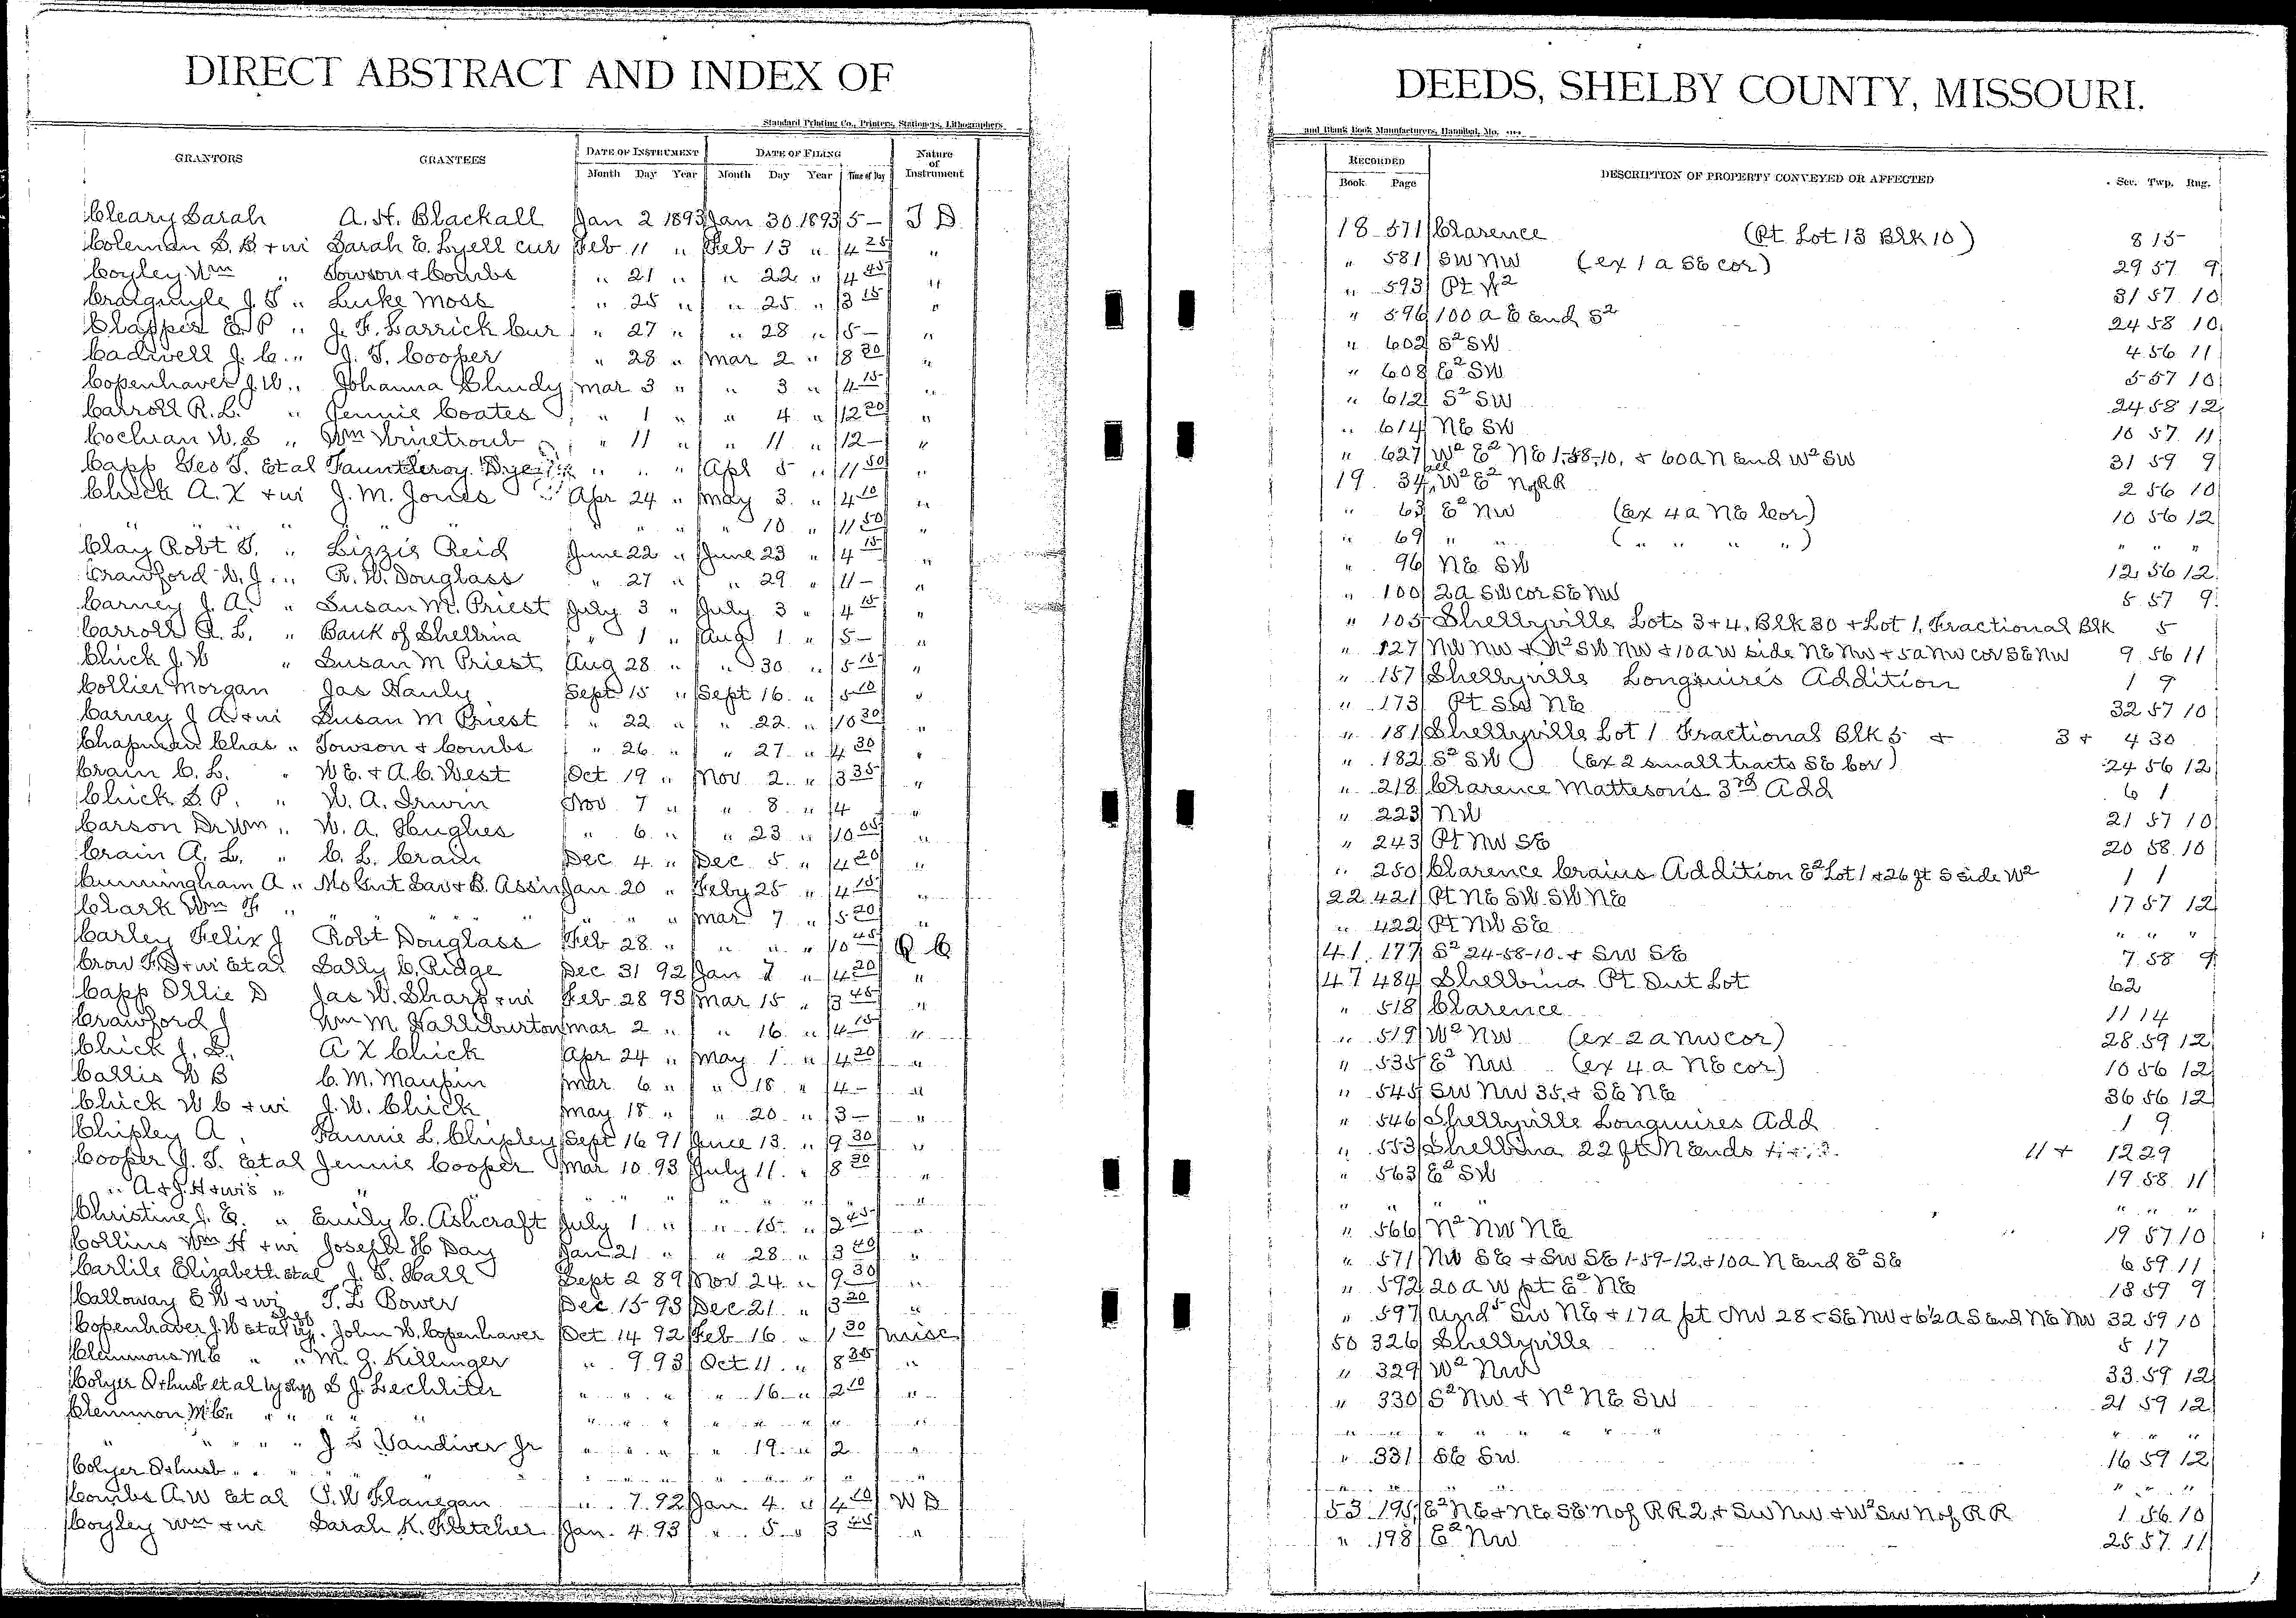 DIRECT ABSTRACT AND INDEX OF
Standard Printing Co., Printers, Stationers, Lithographers
GRANTORS GRANTEES DATE OF INSTRUMENT DATE OF FILING Nature of Instrument
Month Day Year Month Day Year Time of Day
Cleary Sarah A. H. Blackall Jan 2 1893 Jan 30 1893 5— T D
Coleman S. B + wi Sarah E. Lyell cur Feb 11 " Feb 13 " 4 25 "
Coyley Wm " Towson & Combs " 21 " " 22 " 4 45 "
Craigmyle J. T " Luke Moss " 25 " " 25 " 3 15 "
Clapper E. P " J. F. Larrick Cur " 27 " " 28 " 5— "
Cadwell J. C. " J. T. Cooper " 28 " Mar 2 " 8 30 "
Copenhaver J. W. " Johanna Chudy Mar 3 " " 3 " 4 15 "
Carroll R. L. " Jennie Coates " 1 " " 4 " 12 20 "
Cochran W. S " Wm Winetroub " 11 " " 11 " 12— "
Capp Geo T. Etal Fauntleroy Dye " " " Apl 5 " 11 50 "
Chick A. X + wi J. M. Jones Apr 24 " May 3 " 4 10 "
" " " " " " " " " 10 " 11 50 "
Clay Robt T. " Lizzie Reid June 22 " June 23 " 4 15 "
Crawford W. J. " R. W. Douglass " 27 " " 29 " 11— "
Carney J. A. " Susan M. Priest July 3 " July 3 " 4 15 "
Carroll R. L. " Bank of Shelbina " 1 " Aug 1 " 5— "
Chick J. W " Susan M Priest Aug 28 " " 30 " 5 15 "
Collier Morgan Jas Hanly Sept 15 " Sept 16 " 5 10 "
Carney J A + wi Susan M Priest " 22 " " 22 " 10 30 "
Chapman Chas " Towson & Combs " 26 " " 27 " 4 30 "
Crain C. L. " W. E. & A. C. West Oct 19 " Nov 2 " 3 35 "
Chick S. P. " W. A. Irwin Nov 7 " " 8 " 4 "
Carson Dr Wm " W. A. Hughes " 6 " " 23 " 10 05 "
Crain A. L. " C. L. Crain Dec 4 " Dec 5 " 4 20 "
Cunningham A " Mo Gnt Sav & B. Ass'n Jan 20 " Feby 25 " 4 15 "
Clark Wm F " " " " " " " " Mar 7 " 5 20 "
Carley Felix J Robt Douglass Feb 28 " " " " 10 45 Q C
Crow F. D + wi Etal Sally C. Ridge Dec 31 92 Jan 7 " 4 20 "
Capp Ollie D Jas W. Sharp + wi Feb 28 93 Mar 15 " 3 45 "
Crawford J Wm M. Halliburton Mar 2 " " 16 " 4 15 "
Chick J. S. A X Chick Apr 24 " May 1 " 4 20 "
Callis W B C. M. Maupin Mar 6 " " 18 " 4— "
Chick W C + wi J. W. Chick May 18 " " 20 " 3— "
Chipley A. Fannie L. Chipley Sept 16 91 June 13 " 9 30 "
Cooper J. T. Etal Jennie Cooper Mar 10 93 July 11 " 8 30 "
" A & J. H + wis " " " " " " " " " "
Christine J. E. " Emily C. Ashcraft July 1 " " 15 " 2 45 "
Collins Wm H + wi Joseph H Day Jan 21 " " 28 " 3 40 "
Carlile Elizabeth etal J. T. Hall Sept 2 89 Nov 24 " 9 30 "
Calloway E W + wi T. L Bower Dec 15 93 Dec 21 " 3 20 "
Copenhaver J. W etal John W. Copenhaver Oct 14 92 Feb 16 " 1 30 Misc
Clemmons M E " " M. Z. Killinger " 9 93 Oct 11 " 8 35 "
Colyer O + husb et al by shff S J. Lechliter " " " " 16 " 2 10 "
Clemmon M. C " " " " " " " " " " " "
" " " " " J L Vandiver Jr " " " " 19 " 2 "
Colyer O + husb " " " " " " " " " " "
Combs A. W Etal T. W Flanegan " 7 92 Jan 4 " 4 20 W D
Coyley Wm + wi Sarah K. Fletcher Jan 4 93 " 5 " 3 45 "
DEEDS, SHELBY COUNTY, MISSOURI.
and Blank Book Manufacturers, Hannibal, Mo.
RECORDED DESCRIPTION OF PROPERTY CONVEYED OR AFFECTED Sec. Twp. Rng.
Book Page
18 571 Clarence (Pt Lot 13 Blk 10) 8 15
" 581 SW NW (ex 1 a SE cor) 29 57 9
" 593 Pt W2 31 57 10
" 596 100 a E end S2 24 58 10
" 602 S2 SW 4 56 11
" 608 E2 SW 5 57 10
" 612 S2 SW 24 58 12
" 614 NE SW 10 57 11
" 627 W2 E2 NE 1-58-10, & 60 a N end W2 SW 31 59 9
19 34 all W2 E2 N of RR 2 56 10
" 63 E2 NW (Ex 4 a NE Cor) 10 56 12
" 69 " " ( " " " " ) " " "
" 96 NE SW 12 56 12
" 100 2 a SW cor SE NW 5 57 9
" 105 Shelbyville Lots 3 + 4, Blk 30 + Lot 1, Fractional Blk 5
" 127 NW NW & N2 SW NW & 10 a W side NE NW & 5 a NW cor SE NW 9 56 11
" 157 Shelbyville Longmires Addition 1 9
" 173 Pt SW NE 32 57 10
" 181 Shelbyville Lot 1 Fractional Blk 5 & 3 + 4 30
" 182 S2 SW (Ex 2 small tracts SE Cor) 24 56 12
" 218 Clarence Matteson's 3rd Add 6 1
" 223 NW 21 57 10
" 243 Pt NW SE 20 58 10
" 250 Clarence Crains Addition E2 Lot 1 & 26 ft S side W2 1 1
22 421 Pt NE SW SW NE 17 57 12
" 422 Pt NW SE " " "
41 177 S2 24-58-10. & SW SE 7 58 9
47 484 Shelbina Pt Out Lot 62
" 518 Clarence 11 14
" 519 W2 NW (ex 2 a NW cor) 28 59 12
" 535 E2 NW (ex 4 a NE cor) 10 56 12
" 545 SW NW 35, & SE NE 36 56 12
" 546 Shelbyville Longmires Add 1 9
" 553 Shelbina 22 ft N Ends 11 + 12 29
" 563 E2 SW 19 58 11
" " " " " "
" 566 N2 NW NE 19 57 10
" 571 NW SE & SW SE 1-59-12, & 10 a N End E2 SE 6 59 11
" 592 20 a W pt E2 NE 18 59 9
" 597 Und 5 SW NE & 17 a pt NW 28 & SE NW & 6 1/2 a S end NE NW 32 59 10
50 326 Shelbyville 5 17
" 329 W2 NW 33 59 12
" 330 S2 NW & N2 NE SW 21 59 12
" " " " " " " " " "
" 331 SE SW 16 59 12
" " " " " "
53 195 E2 NE & NE SE N of RR 2, & SW NW & W2 SW N of RR 1 56 10
" 198 E2 NW 25 57 11